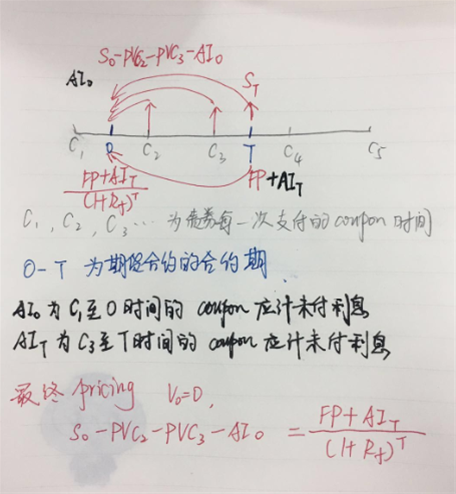 S₀-PVC₂-PVC₃-AI₀
AI₀
S_T
C₁ C₂ C₃ T C₄ C₅
FP+AI_T
(1+R_f)^T
FP+AI_T
C₁, C₂, C₃ … 为债券每一次支付的coupon时间
0-T 为期限合约的合约期
AI₀为C₁至0时间的 coupon 应计未付利息
AI_T为C₃至T时间的 coupon 应计未付利息
最终 pricing V₀=0,
S₀-PVC₂-PVC₃-AI₀ = FP+AI_T
(1+R_f)^T